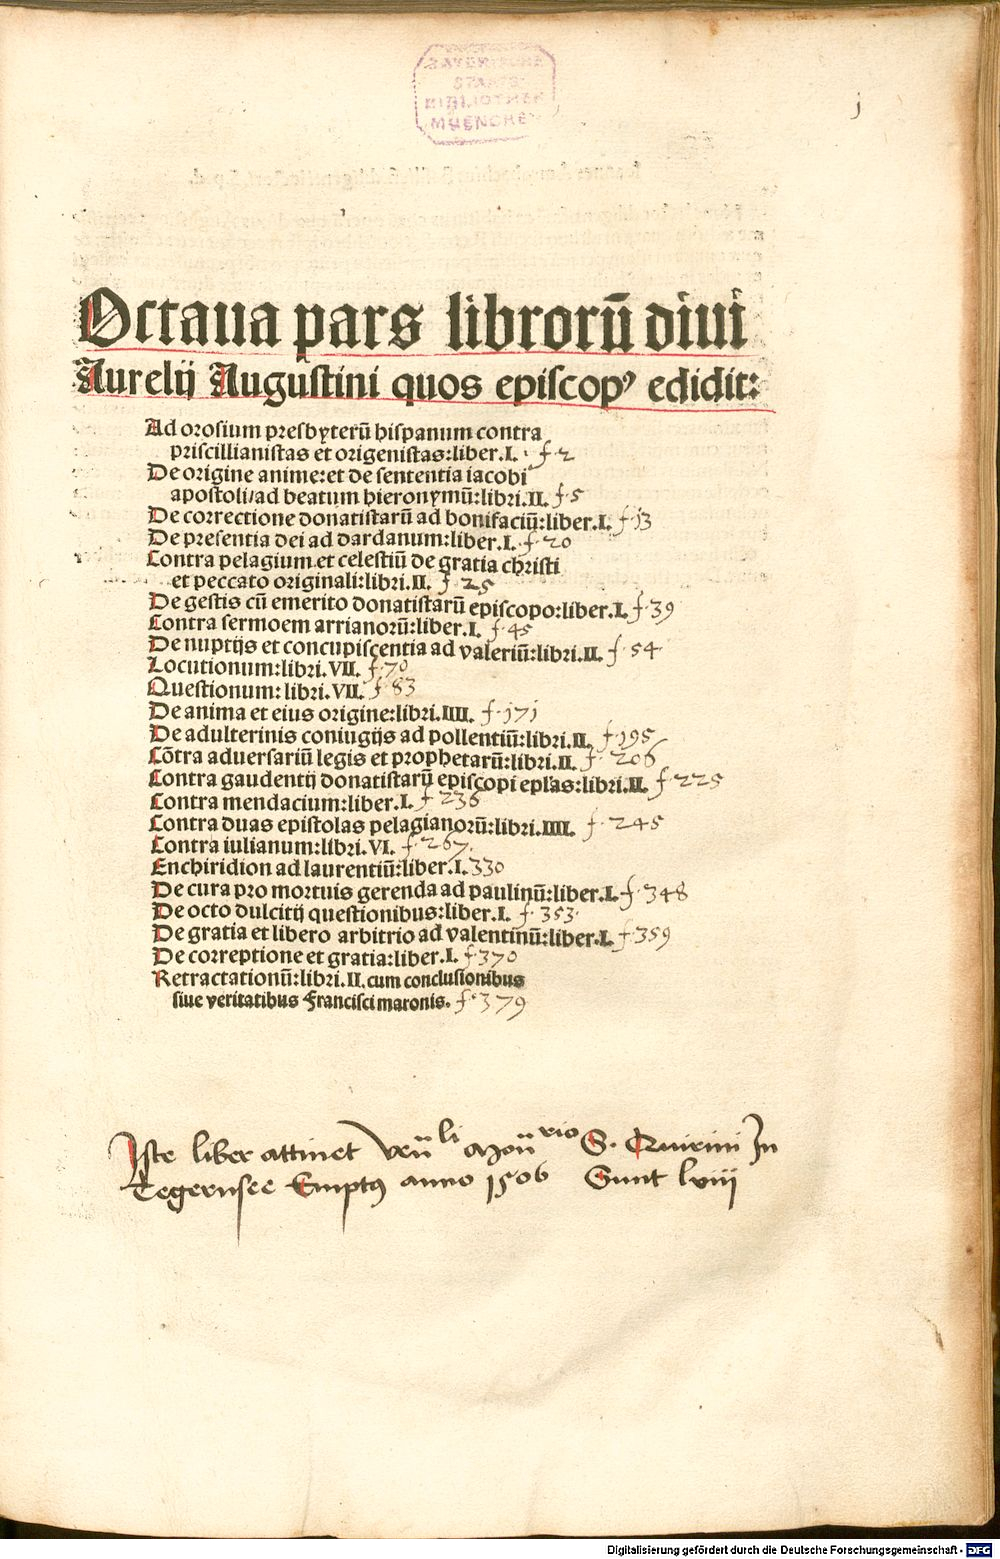 BAYERISCHE
STAATS-
BIBLIOTHEK
MUENCHEN
j
Octaua pars librorū diui
Aurelij Augustini quos episcopꝰ edidit:
Ad orosium presbyterū hispanum contra
priscillianistas et origenistas:liber.I. · f·2
De origine anime:et de sententia iacobi
apostoli/ad beatum hieronymū:libri.II. f·5
De correctione donatistarū ad bonifaciū:liber.I. f·13
De presentia dei ad dardanum:liber.I. f·20
Contra pelagium et celestiū de gratia christi
et peccato originali:libri.II. f·25
De gestis cū emerito donatistarū episcopo:liber.I. f·39
Contra sermoem arrianorū:liber.I. f·45
De nuptijs et concupiscentia ad valeriū:libri.II. f·54
Locutionum:libri.VII. f·70
Questionum:libri.VII. f·83
De anima et eius origine:libri.IIII. f·171
De adulterinis coniugijs ad pollentiū:libri.II. f·195
Cōtra aduersariū legis et prophetarū:libri.II. f·206
Contra gaudentij donatistarū episcopi epl'as:libri.II. f·225
Contra mendacium:liber.I. f 236
Contra duas epistolas pelagianorū:libri.IIII. f·245
Contra iulianum:libri.VI. f·267.
Enchiridion ad laurentiū:liber.I. 330
De cura pro mortuis gerenda ad paulinū:liber.I. f·348
De octo dulcitij questionibus:liber.I. f·353·
De gratia et libero arbitrio ad valentinū:liber.I. f·359
De correptione et gratia:liber.I. f·370
Retractationū:libri.II. cum conclusionibus
siue veritatibus Francisci maronis. f·379
Iste liber attinet Venli Monrio S. Quirini In
Tegernsee Emptꝰ anno 1506 Sunt lviii
Digitalisierung gefördert durch die Deutsche Forschungsgemeinschaft - DFG